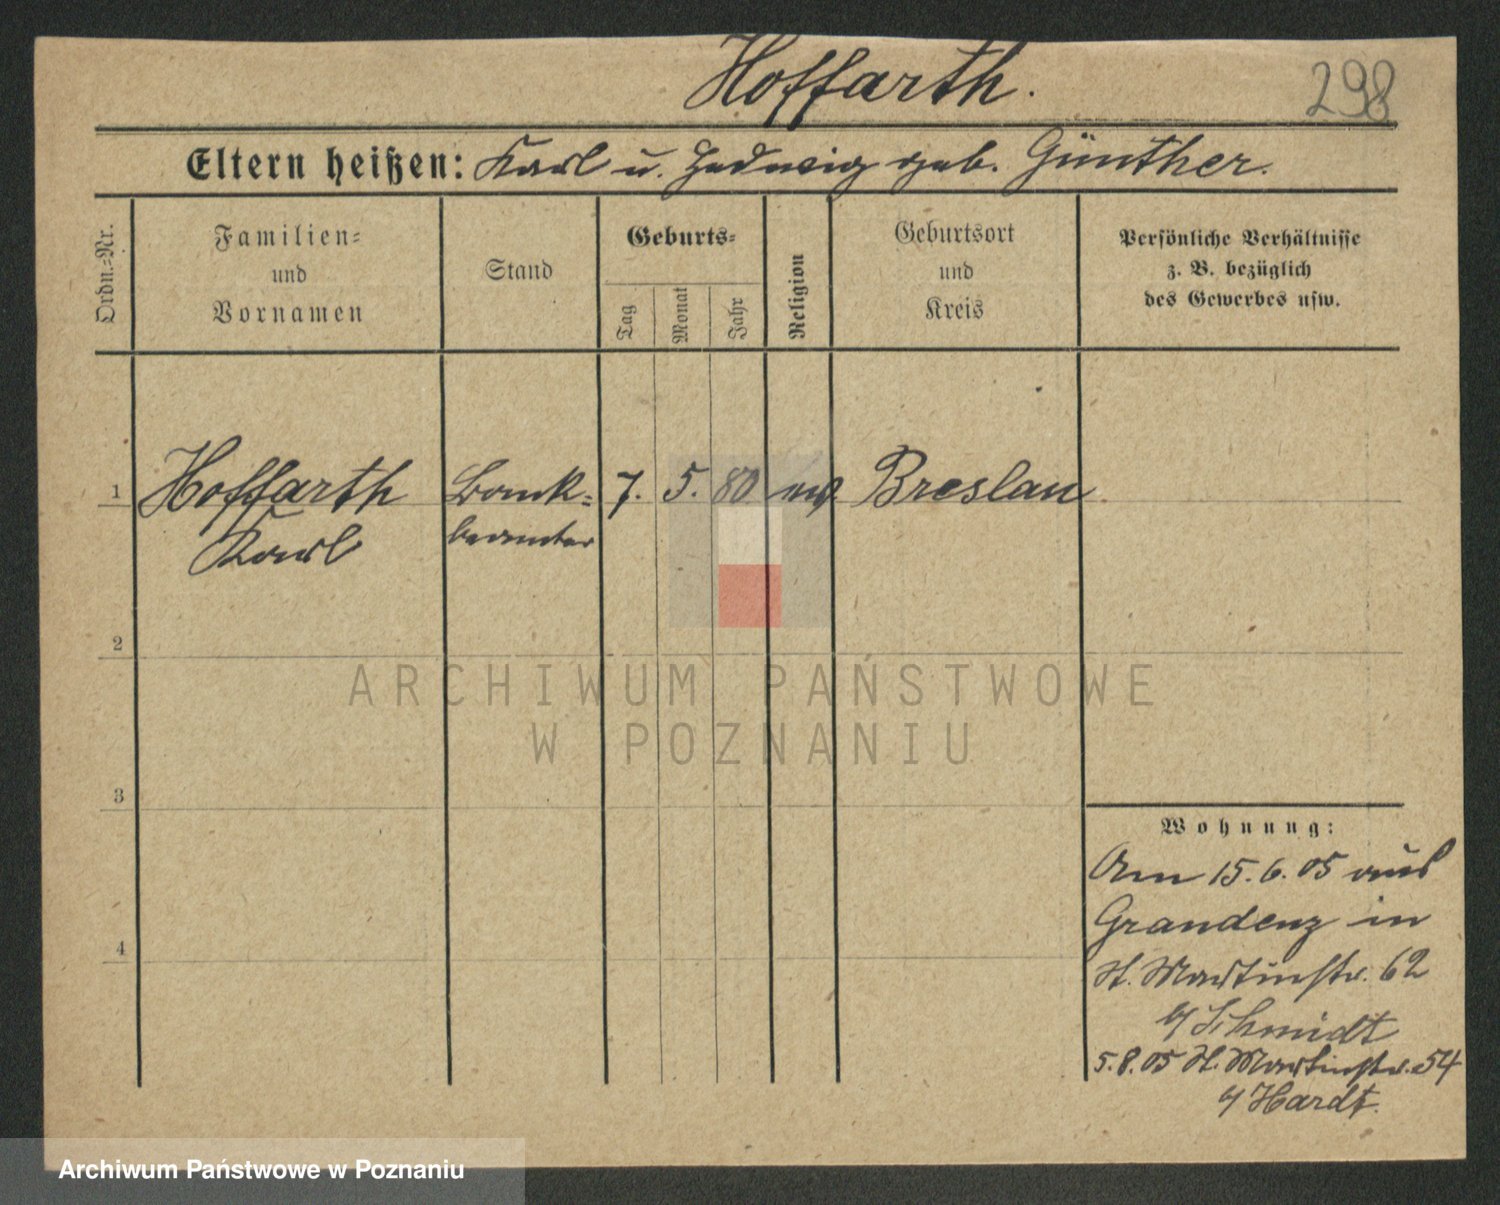 Hoffarth.
298
Eltern heißen: Karl u. Hedwig geb. Günther.
Ordn.=Nr.
Familien=
und
Vornamen
Stand
Geburts=
Tag
Monat
Jahr
Religion
Geburtsort
und
Kreis
Persönliche Verhältnisse
z. B. bezüglich
des Gewerbes usw.
1 Hoffarth Bank= 7. 5. 80 Breslau
Karl beamter
2
3
4
Wohnung:
Am 15.6.05 aus
Graudenz in
St. Martinstr. 62
b/ Schmidt
5.8.05 St. Martinstr. 54
b/ Hardt.
ARCHIWUM PAŃSTWOWE
W POZNANIU
Archiwum Państwowe w Poznaniu